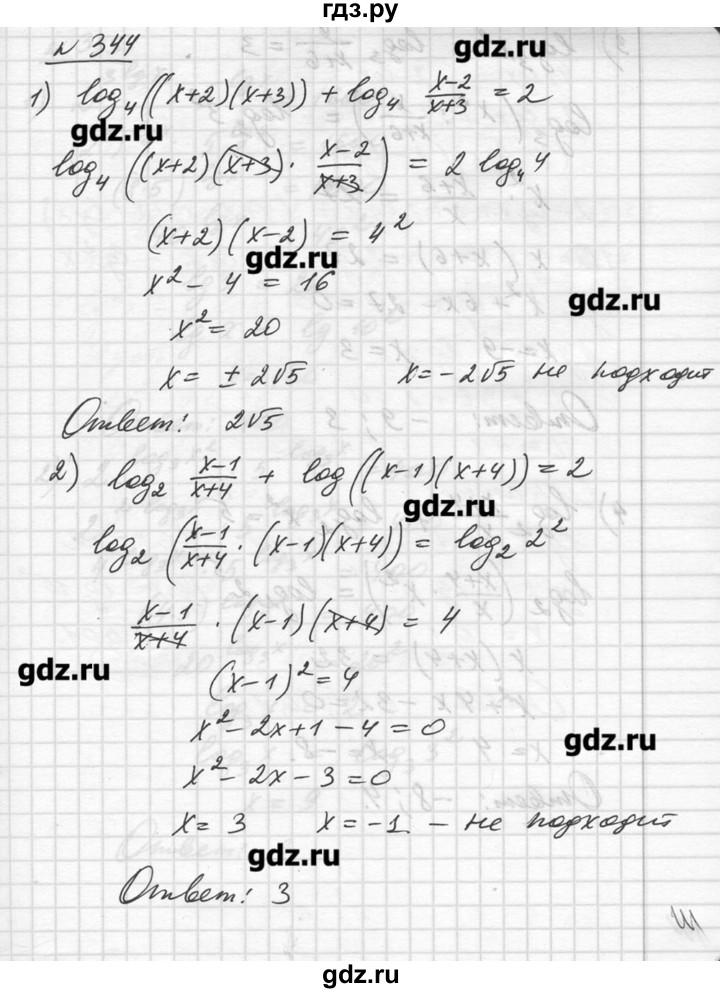 гдз.ру
№ 344
gdz.ru
1) log₄((x+2)(x+3)) + log₄ (x−2)/(x+3) = 2
gdz.ru
log₄((x+2)(x+3) · (x−2)/(x+3)) = 2 log₄4
(x+2)(x−2) = 4²
gdz.ru
x² − 4 = 16
gdz.ru
x² = 20
x = ± 2√5 x = −2√5 не подходит
Ответ: 2√5
2) log₂ (x−1)/(x+4) + log((x−1)(x+4)) = 2
gdz.ru
log₂((x−1)/(x+4) · (x−1)(x+4)) = log₂ 2²
(x−1)/(x+4) · (x−1)(x+4) = 4
gdz.ru
(x−1)² = 4
x² − 2x + 1 − 4 = 0
gdz.ru
x² − 2x − 3 = 0
x = 3 x = −1 − не подходит
gdz.ru
Ответ: 3
gdz.ru